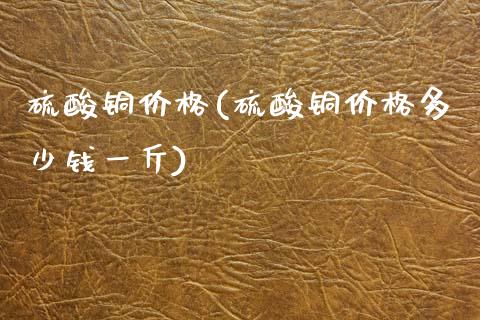 硫酸铜价格(硫酸铜价格多
少钱一斤)